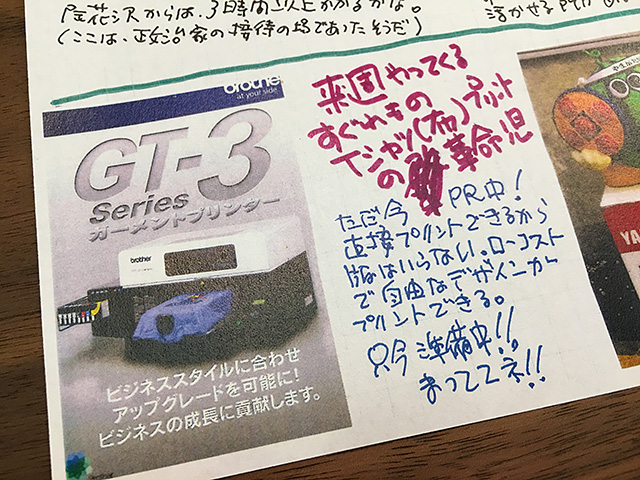 からは、3時間以上かかるかな。
(ここは、政治家の接待の場であったそうだ)
brother
at your side
GT-3
Series
ガーメントプリンター
brother
ビジネススタイルに合わせ
アップグレードを可能に!
ビジネスの成長に貢献します。
来週やってくる
すぐれもの
Tシャツ(布)プリント
の革命児
ただ今 PR中!
直接プリントできるから
版はいらない。ローコスト
で自由なデザインが
プリントできる。
只今準備中!!
まっててネ!!
YA